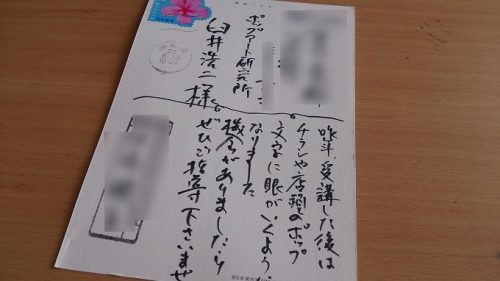 ポップアート研究所
臼井浩二様
昨年、受講した後は
チラシや店頭のポップ
文字に眼がいくよう
なりました
機会がありましたら
ぜひご指導下さいませ